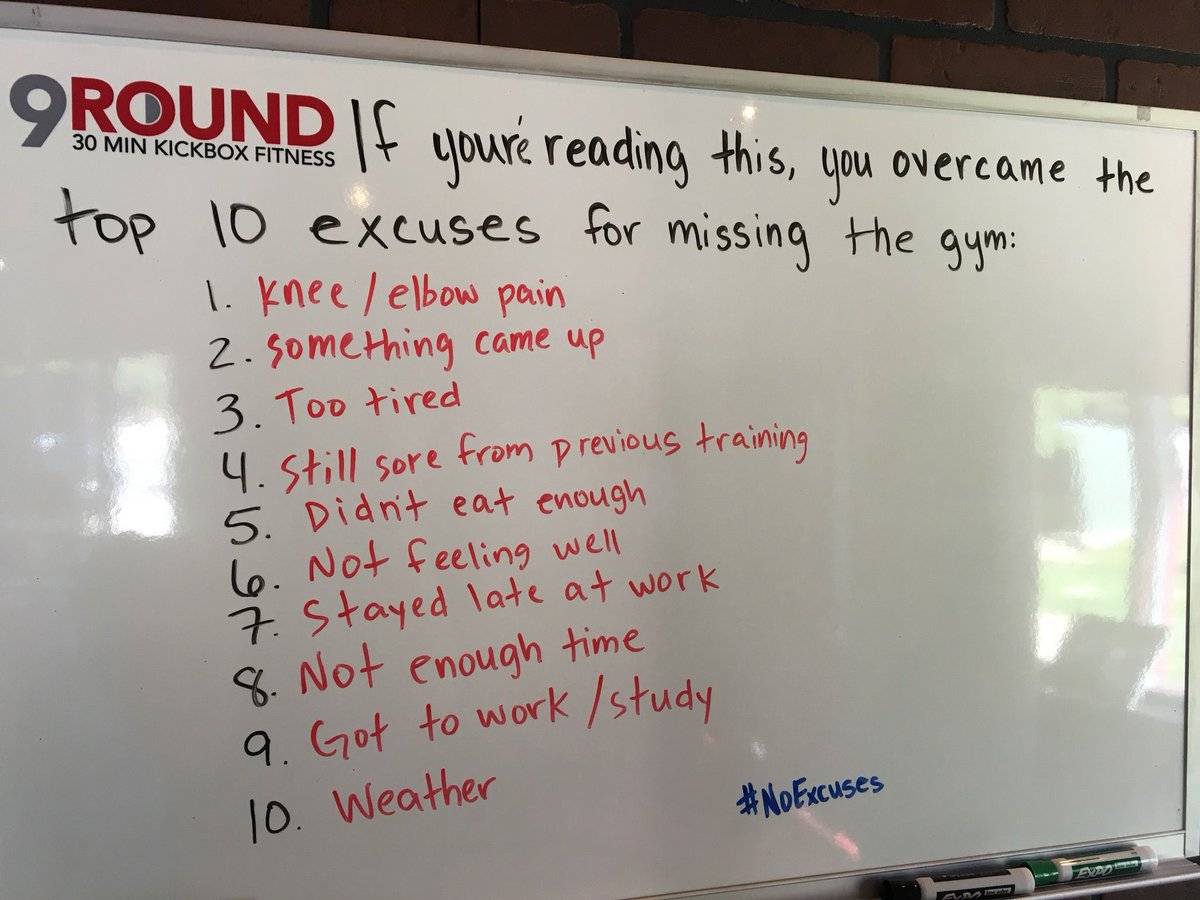 9ROUND
30 MIN KICKBOX FITNESS
If you're reading this, you overcame the
top 10 excuses for missing the gym:
1. Knee/elbow pain
2. Something came up
3. Too tired
4. Still sore from previous training
5. Didn't eat enough
6. Not feeling well
7. Stayed late at work
8. Not enough time
9. Got to work/study
10. Weather
#NoExcuses
EXPO
EXPO